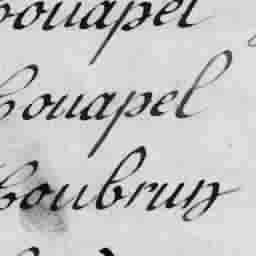 Couapel
Couapel
Coubrun